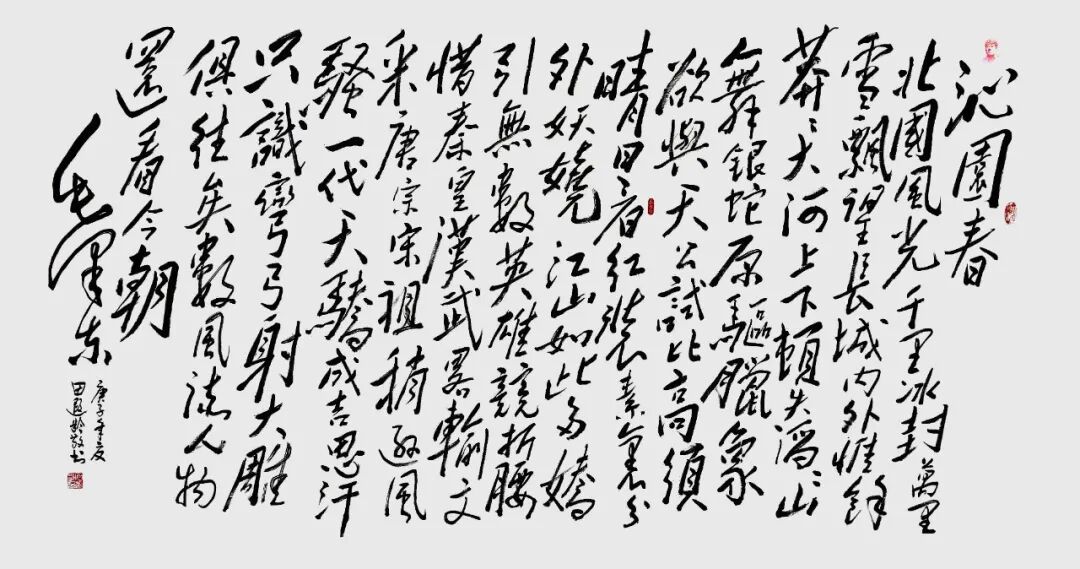 沁園春
北國風光千里冰封萬里
雪飄望長城內外惟餘
莽〻大河上下頓失滔〻山
舞銀蛇原驅臘象
欲與天公試比高須
晴日看紅裝素裹分
外妖嬈江山如此多嬌
引無數英雄競折腰
惜秦皇漢武畧輸文
采唐宗宋祖稍遜風
騷一代天驕成吉思汗
只識彎弓射大雕
俱往矣數風流人物
還看今朝
毛澤東
庚子夏
田遐齡敬書